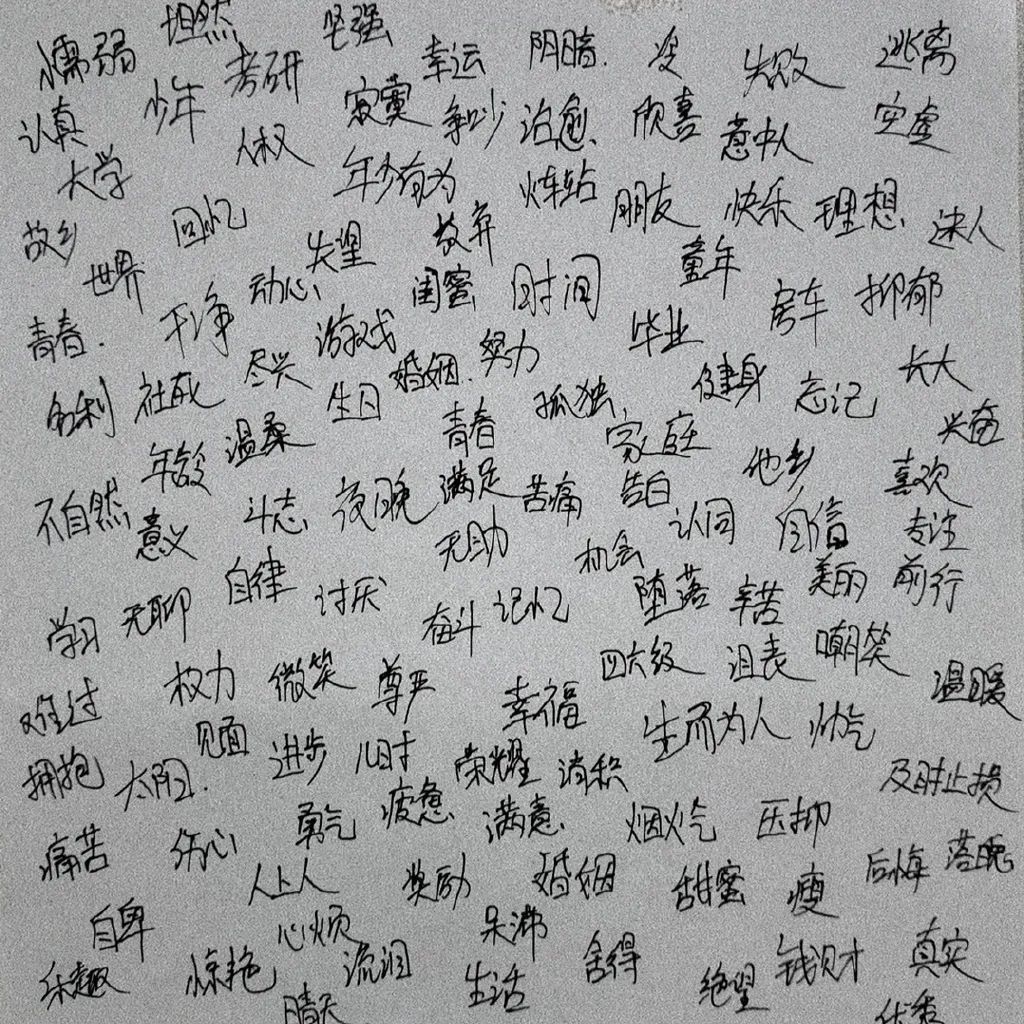 懦弱 坦然 坚强 幸运 阴暗 没 失败 逃离
认真 少年 考研 寂寞 争吵 治愈 欣喜 意中人 空虚
大学 人权 年少有为 炸站 朋友 快乐 理想 迷人
故乡 回忆 失望 放弃 童年
世界 动心 闺蜜 时间 房车 抑郁
青春 干净 游戏 努力 毕业
名利 社死 尽兴 生日 婚姻 孤独 健身 忘记 长大
年龄 温柔 青春 家庭 他乡 兴奋
不自然 意义 斗志 夜晚 满足 苦痛 告白 认同 自信 喜欢 专注
学习 无聊 自律 讨厌 无助 机会 堕落 辛苦 美丽 前行
奋斗 记忆 四六级 泪表 嘲笑
难过 权力 微笑 尊严 幸福 生而为人 帅气 温暖
拥抱 太阳 见面 进步 儿时 荣耀 消积 及时止损
痛苦 伤心 勇气 疲惫 满意 烟火气 压抑 后悔 落魄
人上人 奖励 婚姻 甜蜜 瘦
自卑 心烦 呆沸 舍得 钱财 真实
乐趣 惊艳 流泪 生活 绝望
晴天 优秀